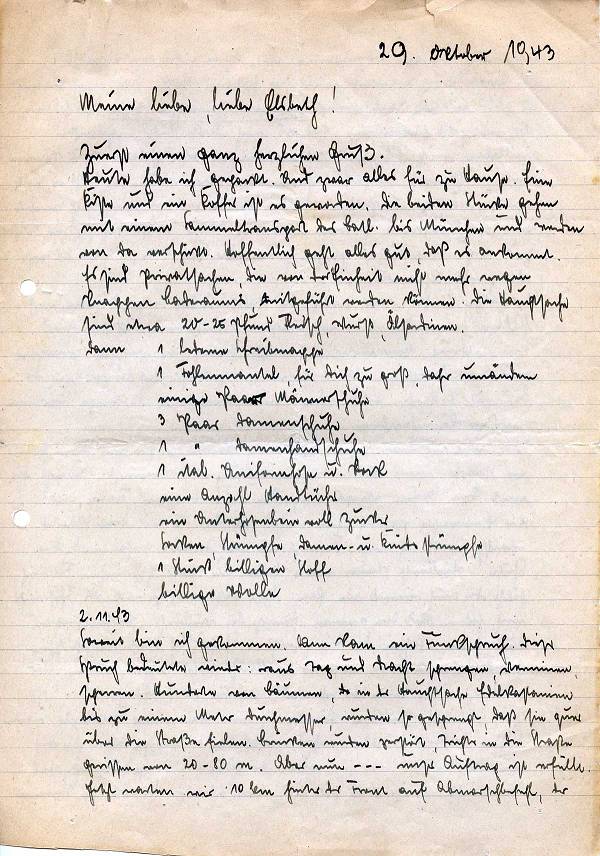 29. Oktober 1943
Meine liebe, liebe Elsbeth!
Zuerst einen ganz herzlichen Gruß.
Heute habe ich gepackt. Und zwar alles für zu Hause. Eine
Kiste und ein Koffer ist es geworden. Die beiden Stücke gehen
mit einem Sammeltransport des Batl. bis München und werden
von da verschickt. Hoffentlich geht alles gut, daß es ankommt.
Es sind Privatsachen, die von der Einheit nicht mehr wegen
knappen Laderaums mitgeführt werden können. Die Hauptsache
sind etwa 20-25 Pfund Fleisch, Wurst, Ölsardinen.
Dann 1 lederne Schreibmappe
1 Fohlenmantel, für Dich zu groß, daher umändern
einige Paar Männerschuhe
3 Paar Damenschuhe
1 " Damenhandschuhe
1 ital. Uniformhose u. Rock
eine Anzahl Handtücher
ein Unterhosenbein voll Zucker
Socken, Strümpfe, Damen- u. Kniestrümpfe
1 Stück billigen Stoff
billige Wolle
2.11.43
Soweit bin ich gekommen. Dann kam ein Funkspruch. Dieser
Spruch bedeutete wieder: raus Tag und Nacht sprengen, verminen,
sperren. Hunderte von Bäumen, da in der Hauptsache Edelkastanien
bis zu einem Meter Durchmesser, wurden so gesprengt, daß sie quer
über die Straße fielen. Brücken wurden zerstört, Trichter in die Straße
gerissen von 20-80 m. Aber nun --- unser Auftrag ist erfüllt.
Jetzt warten wir 10 km hinter der Front auf Abmarschbefehl, der